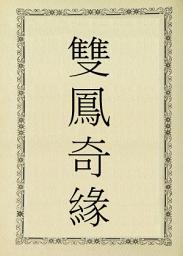 雙鳳奇緣